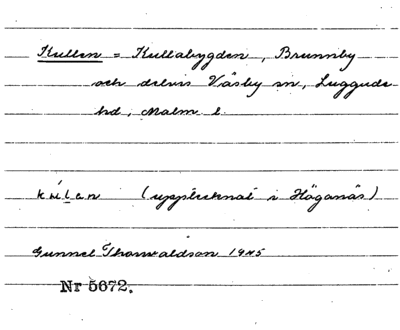 Kullen = Kullabygden, Brunnby
och delvis Väsby sn, Luggude
hd, Malm l.
kúlan (upptecknat i Höganäs)
Gunnel Thorvaldson 1945
Nr 5672.